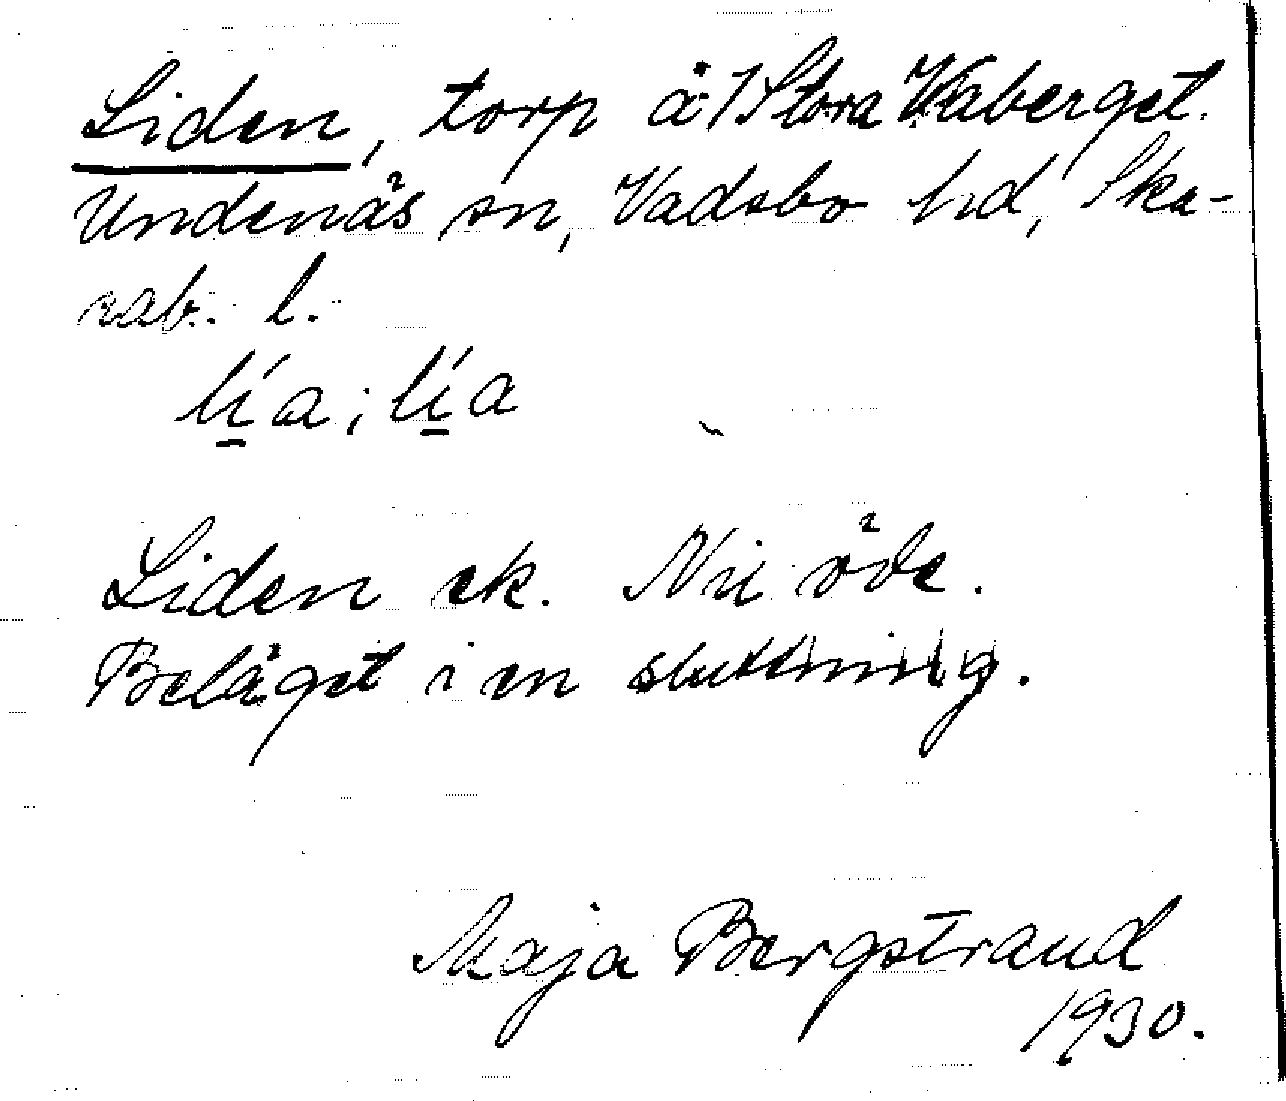 Liden, torp å/Stora Vaberget.
Undenäs sn, Vadsbo hd, Ska-
rab. l.
lía; lía
Liden ek. Nu öde.
Beläget i en sluttning.
Maja Bergstrand
1930.